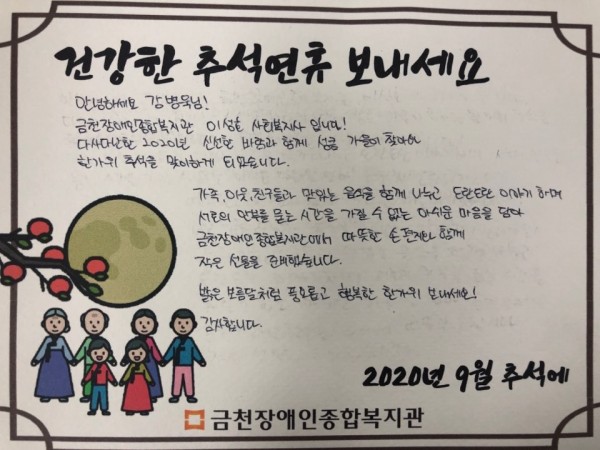 건강한 추석연휴 보내세요
안녕하세요 강병욱님!
금천장애인종합복지관 사회복지사 입니다!
다사다난한 2020년 선선한 바람과 함께 성큼 가을이 찾아와
한가위 추석을 맞이하게 되었습니다.
가족, 이웃, 친구들과 맛있는 음식을 함께 나누고 도란도란 이야기 하며
서로의 안부를 묻는 시간을 가질 수 없는 아쉬운 마음을 담아
금천장애인종합복지관에서 따뜻한 손편지와 함께
작은 선물을 준비했습니다.
밝은 보름달처럼 풍요롭고 행복한 한가위 보내세요!
감사합니다.
2020년 9월 추석에
금천장애인종합복지관